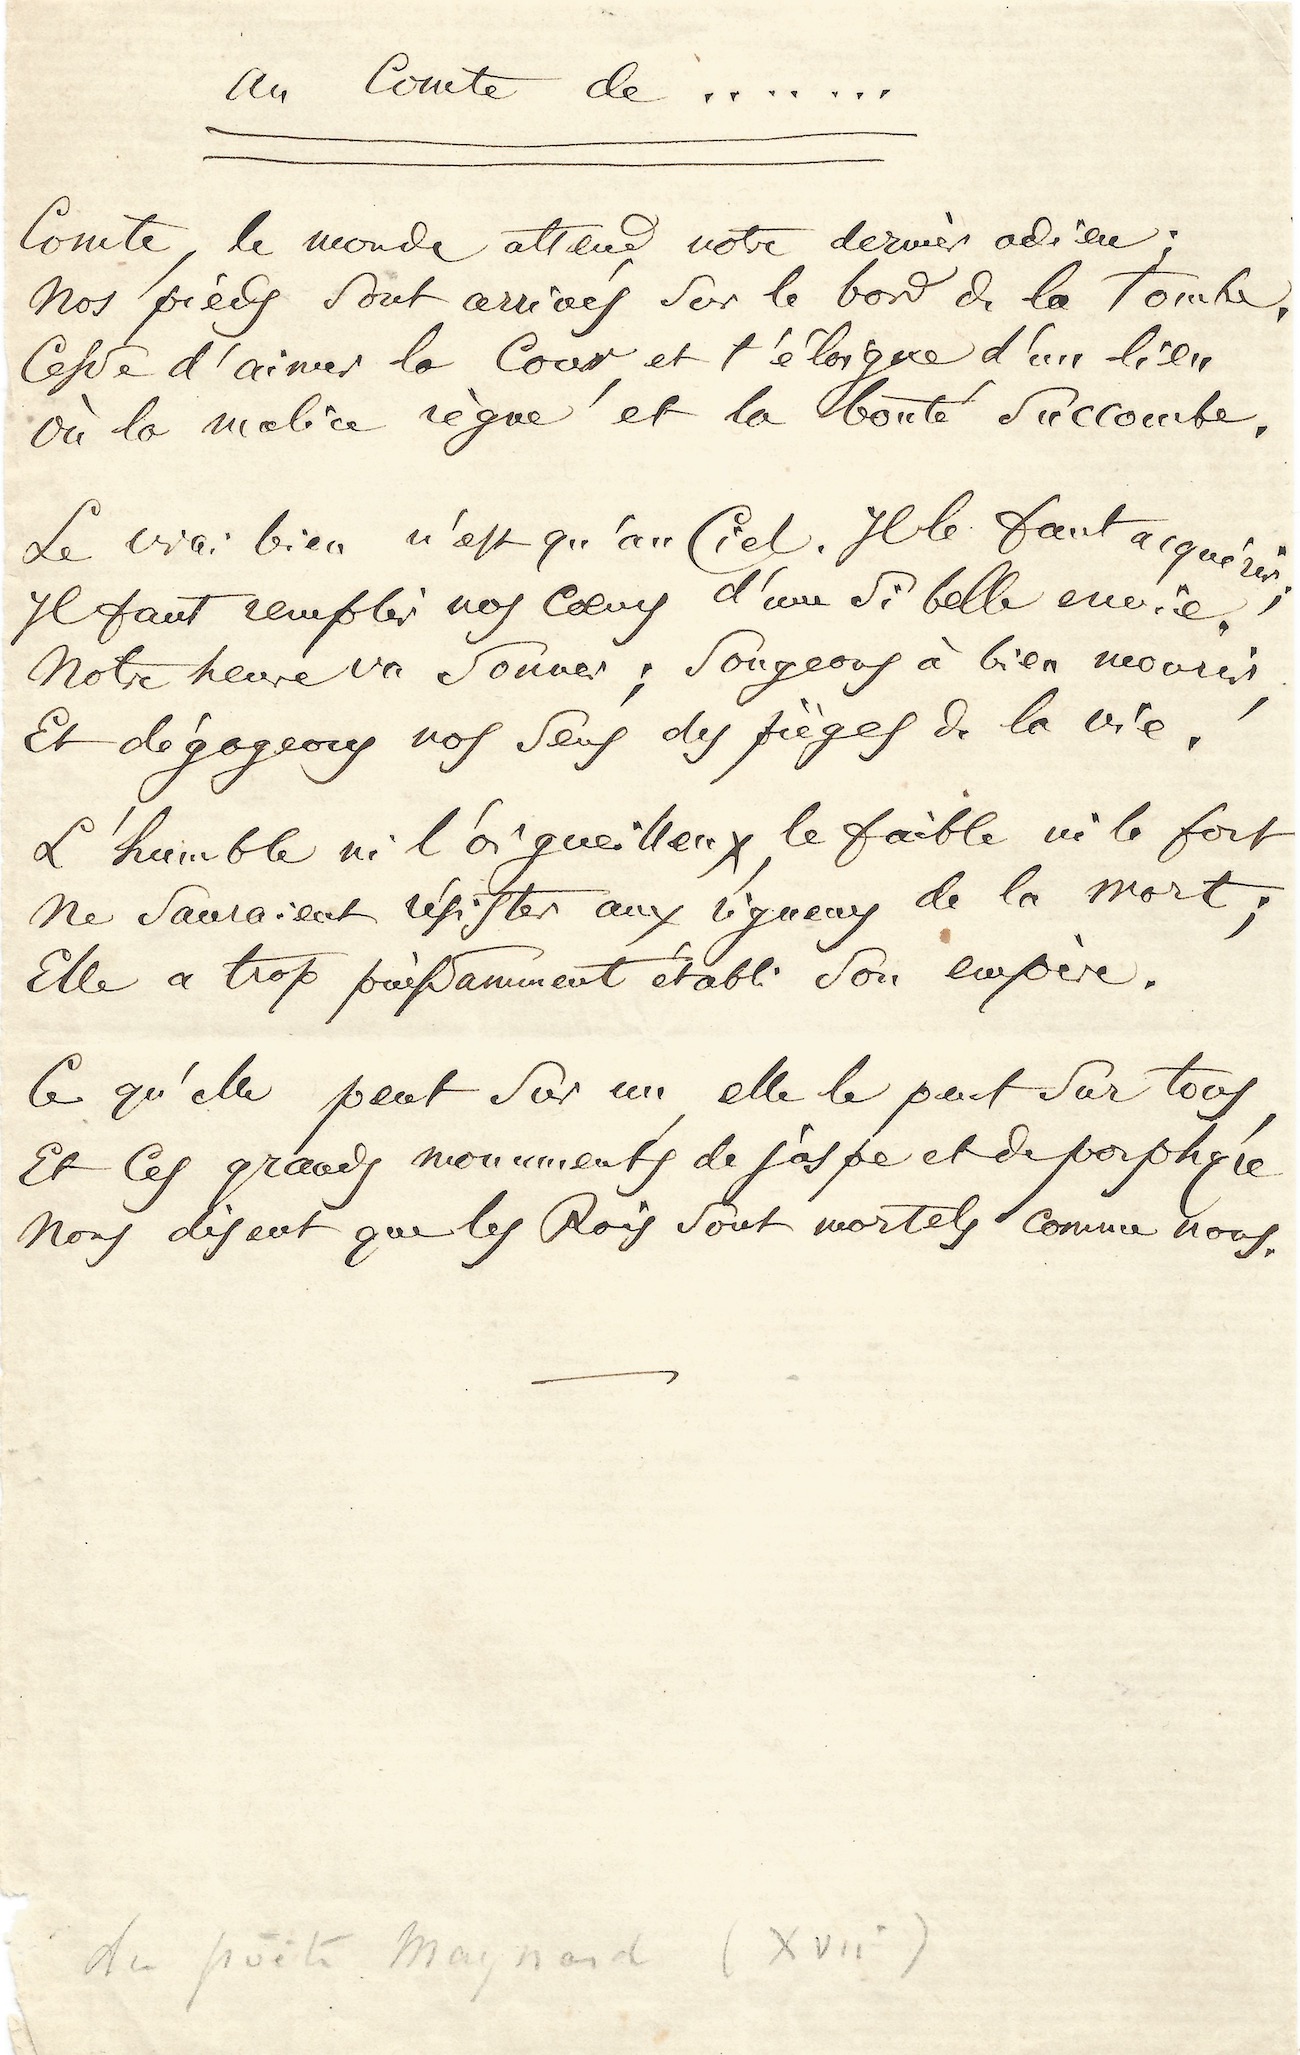 Au Comte de ........
Comte, le monde attend notre dernier adieu ;
Nos pieds sont arrivés sur le bord de la Tombe.
Cesse d'aimer la Cour, et t'éloigne d'un lieu
Où la malice règne et la bonté succombe.
Le vrai bien n'est qu'au Ciel. Il le faut acquérir ;
Il faut remplir nos cœurs d'une si belle envie.
Notre heure va sonner ; songeons à bien mourir,
Et dégageons nos sens des pièges de la vie.
L'humble ni l'orgueilleux, le faible ni le fort
Ne sauraient résister aux rigueurs de la mort ;
Elle a trop puissamment établi son empire.
Ce qu'elle peut sur un, elle le peut sur tous,
Et ces grands monuments de jaspe et de porphyre
Nous disent que les Rois sont mortels comme nous.
du poëte Maynard (XVIIe)